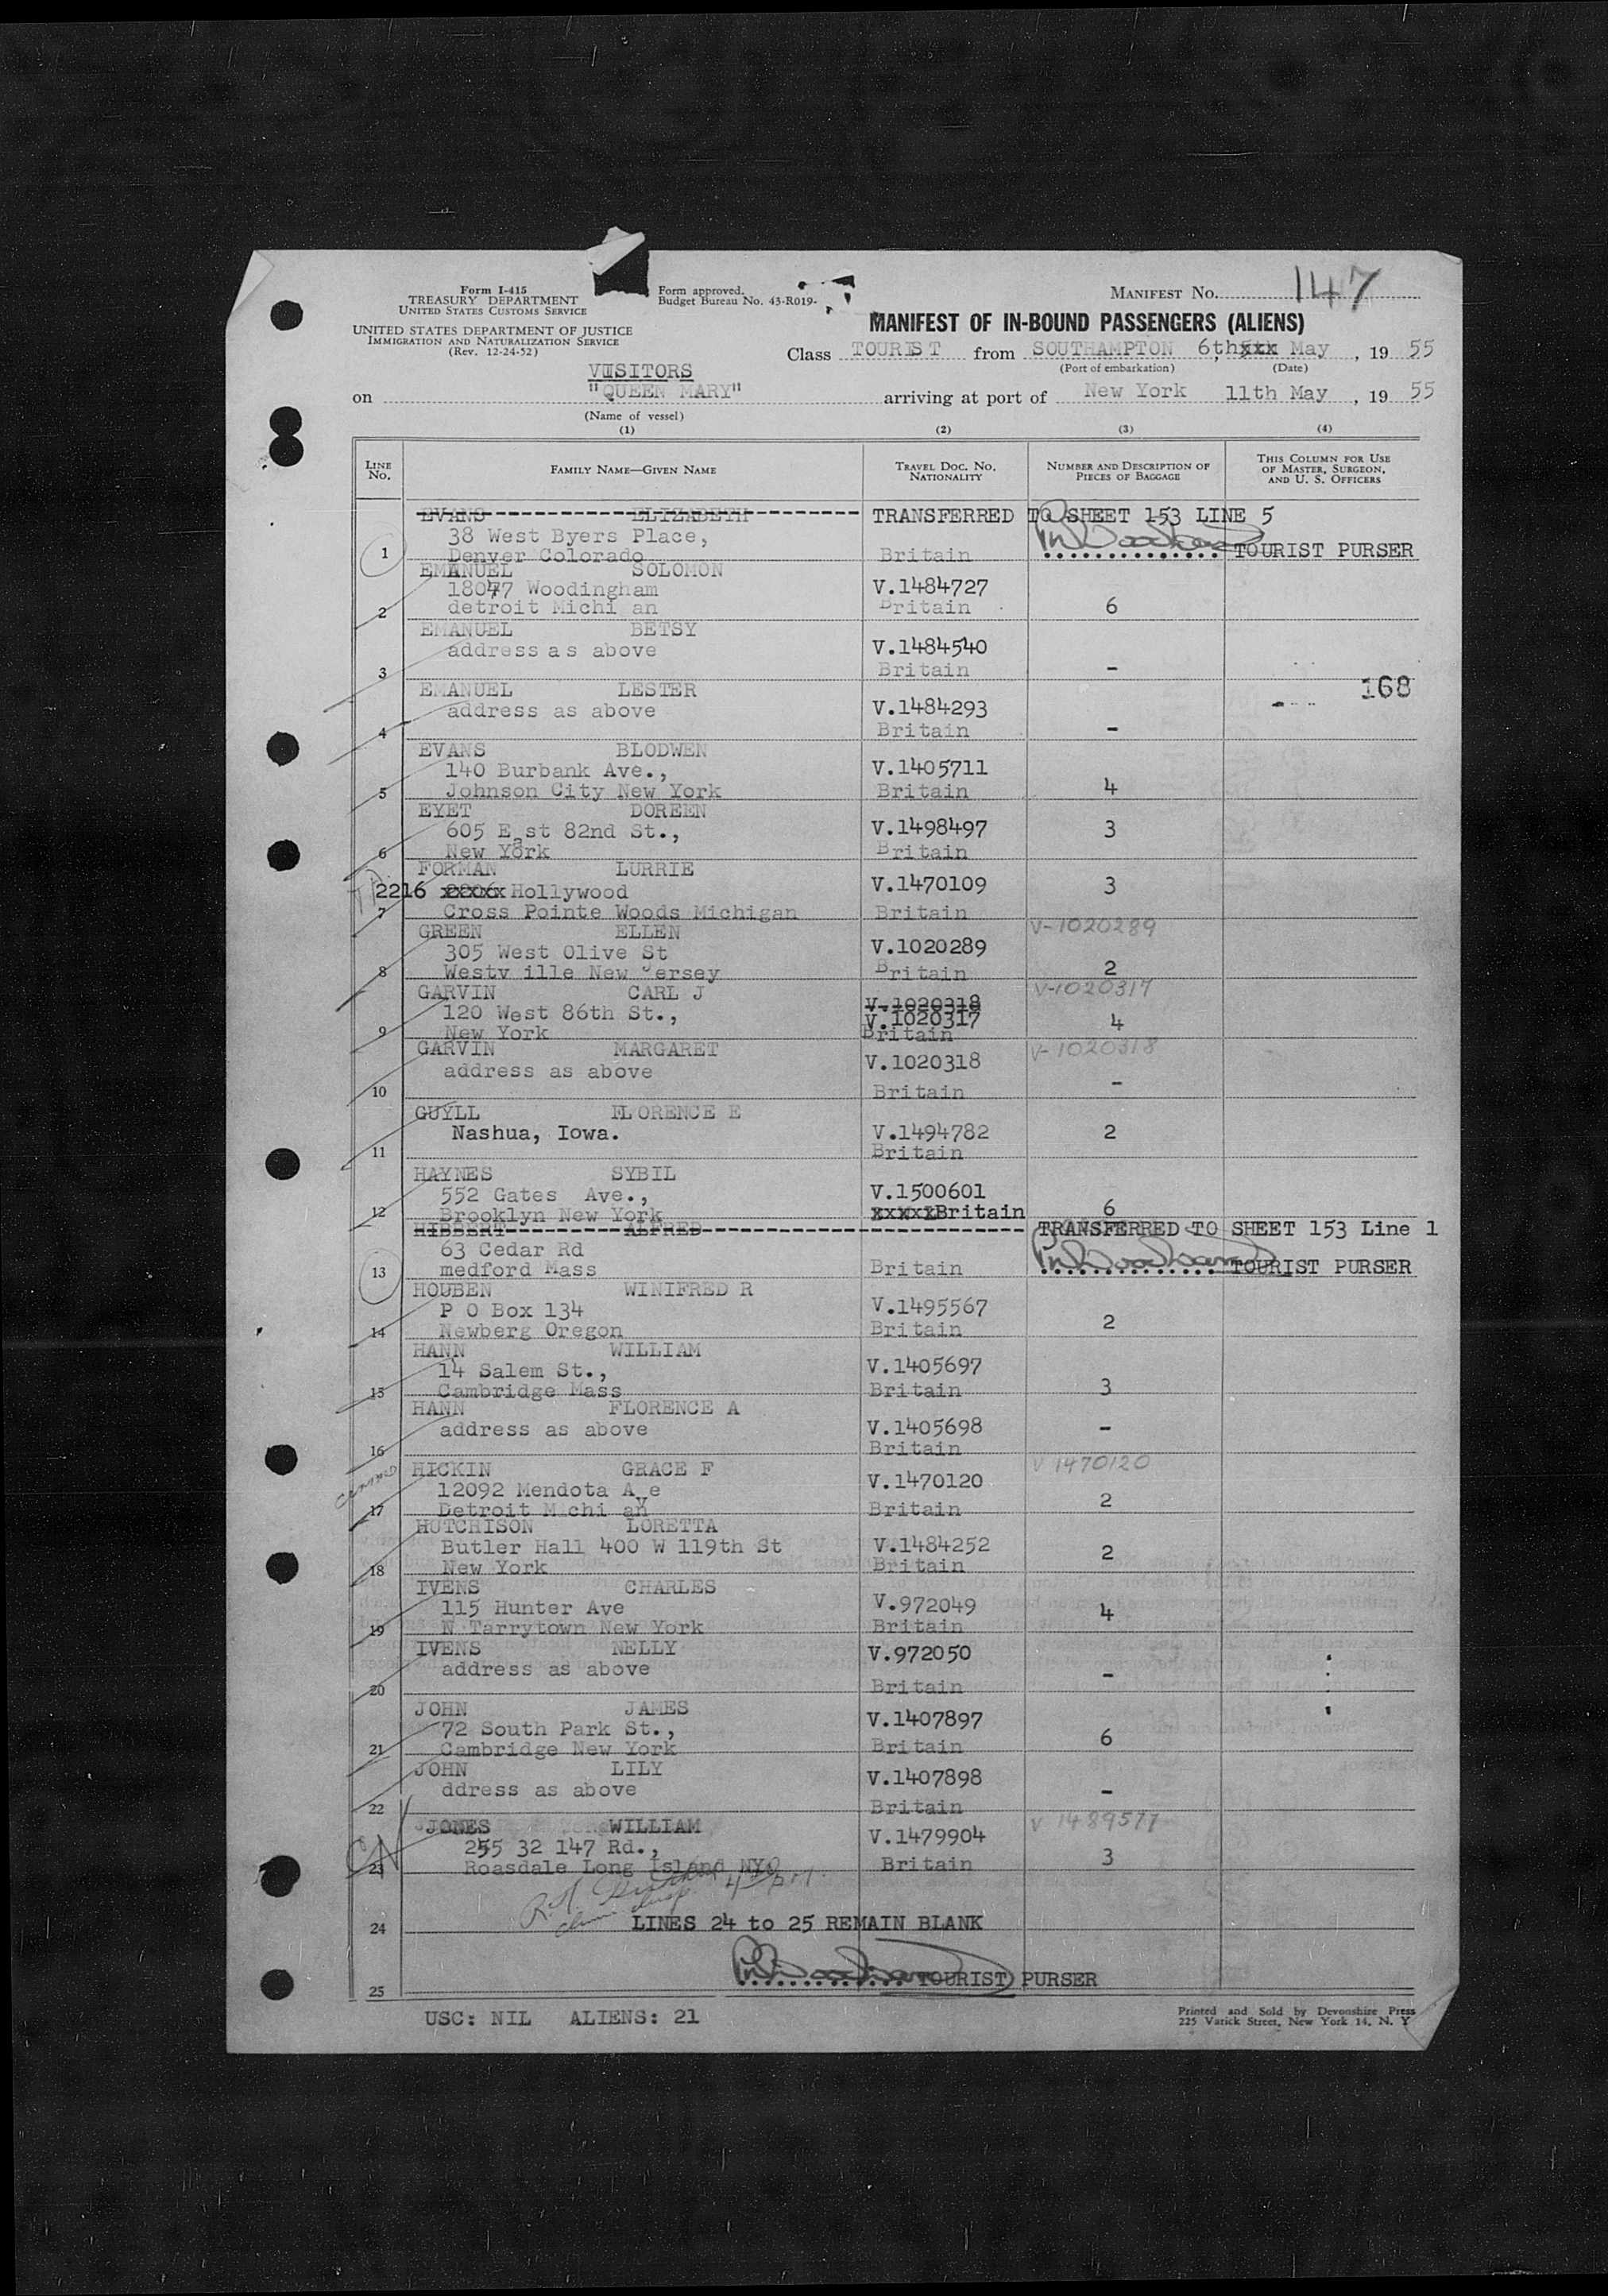 Form I-415
TREASURY DEPARTMENT
UNITED STATES CUSTOMS SERVICE
UNITED STATES DEPARTMENT OF JUSTICE
IMMIGRATION AND NATURALIZATION SERVICE
(Rev. 12-24-52)
Form approved.
Budget Bureau No. 43-R019-
MANIFEST No. 147
MANIFEST OF IN-BOUND PASSENGERS (ALIENS)
Class TOURIST from SOUTHAMPTON 6th xxx May, 19 55
(Port of embarkation) (Date)
VISITORS
on "QUEEN MARY" arriving at port of New York 11th May, 19 55
(Name of vessel)
(1) (2) (3) (4)
LINE No. FAMILY NAME—GIVEN NAME TRAVEL DOC. NO. NATIONALITY NUMBER AND DESCRIPTION OF PIECES OF BAGGAGE THIS COLUMN FOR USE OF MASTER, SURGEON, AND U. S. OFFICERS
EVANS ELIZABETH TRANSFERRED TO SHEET 153 LINE 5
38 West Byers Place,
1 Denver Colorado Britain TOURIST PURSER
EMANUEL SOLOMON
18047 Woodingham V.1484727
2 detroit Michi an Britain 6
EMANUEL BETSY
address as above V.1484540
3 Britain -
168
EMANUEL LESTER
address as above V.1484293
4 Britain -
EVANS BLODWEN
140 Burbank Ave., V.1405711
5 Johnson City New York Britain 4
EYET DOREEN
605 East 82nd St., V.1498497 3
6 New York Britain
FORMAN LURRIE
2216 xxxxx Hollywood V.1470109 3
7 Cross Pointe Woods Michigan Britain
GREEN ELLEN V-1020289
305 West Olive St V.1020289
8 Westv ille New Jersey Britain 2
GARVIN CARL J V.1020318 V-1020317
120 West 86th St., V.1020317 4
9 New York Britain
GARVIN MARGARET V.1020318 V-1020318
address as above
10 Britain -
GUYLL FLORENCE E
Nashua, Iowa. V.1494782 2
11 Britain
HAYNES SYBIL
552 Gates Ave., V.1500601
12 Brooklyn New York xxxxxBritain 6
HIBBERT ALFRED TRANSFERRED TO SHEET 153 Line 1
63 Cedar Rd
13 medford Mass Britain TOURIST PURSER
HOUBEN WINIFRED R
P O Box 134 V.1495567
14 Newberg Oregon Britain 2
HANN WILLIAM
14 Salem St., V.1405697
15 Cambridge Mass Britain 3
HANN FLORENCE A
address as above V.1405698 -
16 Britain
HICKIN GRACE F V 1470120
12092 Mendota Ave V.1470120
17 Detroit Michi an Britain 2
HUTCHISON LORETTA
Butler Hall 400 W 119th St V.1484252 2
18 New York Britain
IVENS CHARLES
115 Hunter Ave V.972049 4
19 N Tarrytown New York Britain
IVENS NELLY V.972050
address as above -
20 Britain
JOHN JAMES
72 South Park St., V.1407897
21 Cambridge New York Britain 6
JOHN LILY
ddress as above V.1407898 -
22 Britain
JONES WILLIAM V 1489577
255 32 147 Rd., V.1479904
23 Roasdale Long Island NYO Britain 3
24 LINES 24 to 25 REMAIN BLANK
25 TOURIST PURSER
USC: NIL ALIENS: 21
Printed and Sold by Devonshire Press
225 Varick Street, New York 14, N. Y